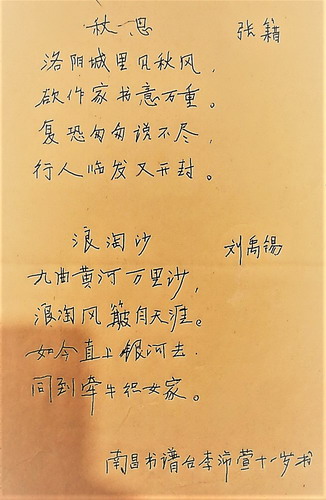 秋思 张籍
洛阳城里见秋风,
欲作家书意万重。
复恐匆匆说不尽,
行人临发又开封。
浪淘沙 刘禹锡
九曲黄河万里沙,
浪淘风簸自天涯。
如今直上银河去.
同到牵牛织女家。
南昌书谱台李沛萱十一岁书